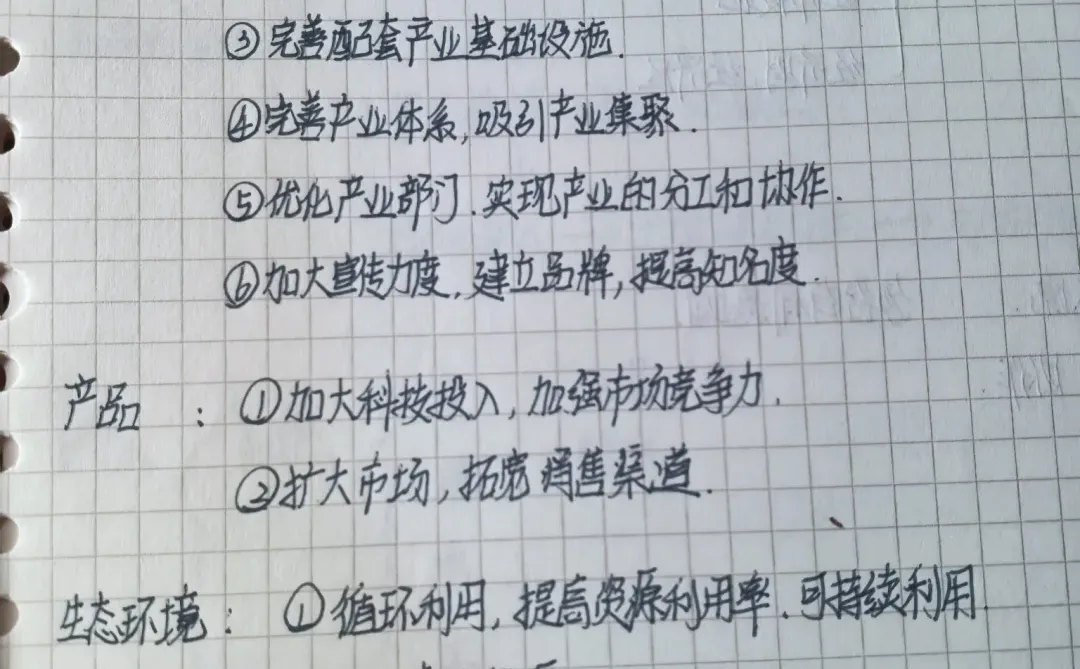 ③完善配套产业基础设施.
④完善产业体系,吸引产业集聚.
⑤优化产业部门.实现产业的分工和协作.
⑥加大宣传力度,建立品牌,提高知名度.
产品:①加大科技投入,加强市场竞争力.
②扩大市场,拓宽销售渠道.
生态环境:①循环利用,提高资源利用率.可持续利用.